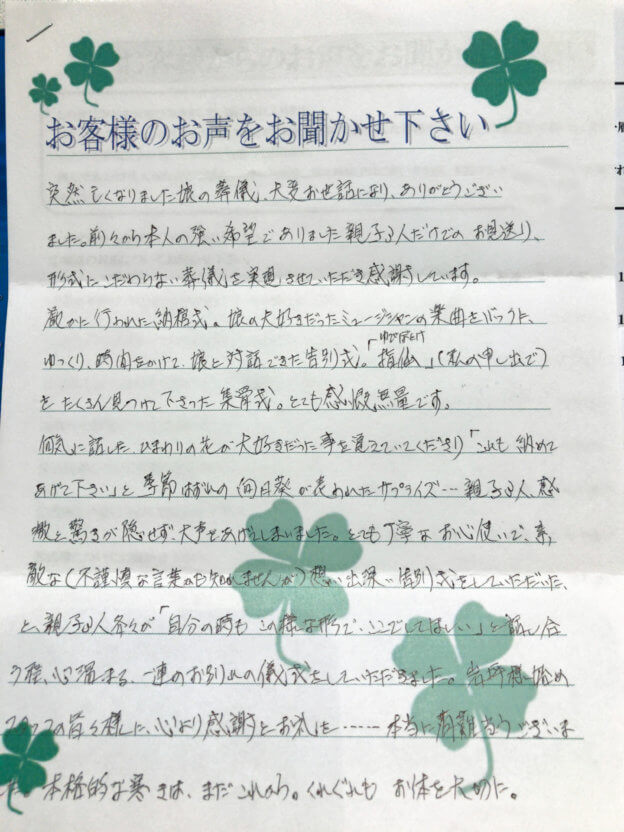 お客様のお声をお聞かせ下さい
突然亡くなりました娘の葬儀、大変お世話になり、ありがとうござい
ました。前々から本人の強い希望でありました親子3人だけでのお見送り、
形式にこだわらない葬儀を実現させていただき感謝しています。
厳かに行われた納棺式。娘の大好きだったミュージシャンの楽曲をバックに、
ゆっくり、時間をかけて、娘と対話できた告別式。「指仏」(私の申し出で)
ゆびぼとけ
をたくさん見つけて下さった集骨式。とても感慨無量です。
何気に話した、ひまわりの花が大好きだった事を覚えていてくださり「これも納めて
あげて下さい」と季節はずれの向日葵が表われたサプライズ…親子3人、感
激と驚きが隠せず大声をあげてしまいました。とても丁寧なお心使いで、素
敵な(不謹慎な言葉かも知れませんが)想い出深い告別式をしていただいた、
と、親子3人各々が「自分の時もこの様な形で、ここでしてほしい」と話し合
う程、心温まる、一連のお別れの儀式をしていただきました。様始め
スタッフの皆々様に、心より感謝とお礼を……本当に有難うございま
した 本格的な寒さは、まだこれから。くれぐれも お体を大切に。